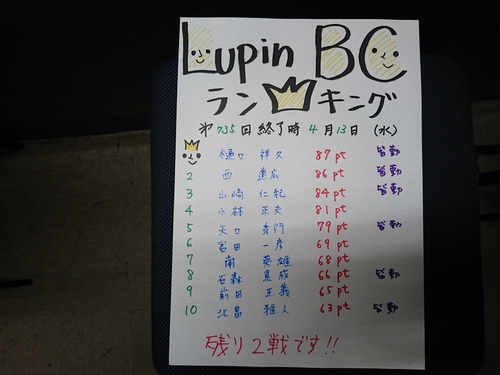 Lupin BC
ランキング
第735回終了時 4月13日 (水)
樋口 祥久 87pt 皆勤
2 西 直広 86pt 皆勤
3 山崎 仁紀 84pt 皆勤
4 小林 正史 81pt
5 矢口 秀行 79pt 皆勤
6 宮田 一彦 69pt
7 南 英雄 68pt
8 石森 真成 66pt 皆勤
9 前田 正義 65pt
10 北畠 雅人 63pt 皆勤
残り2戦です!!